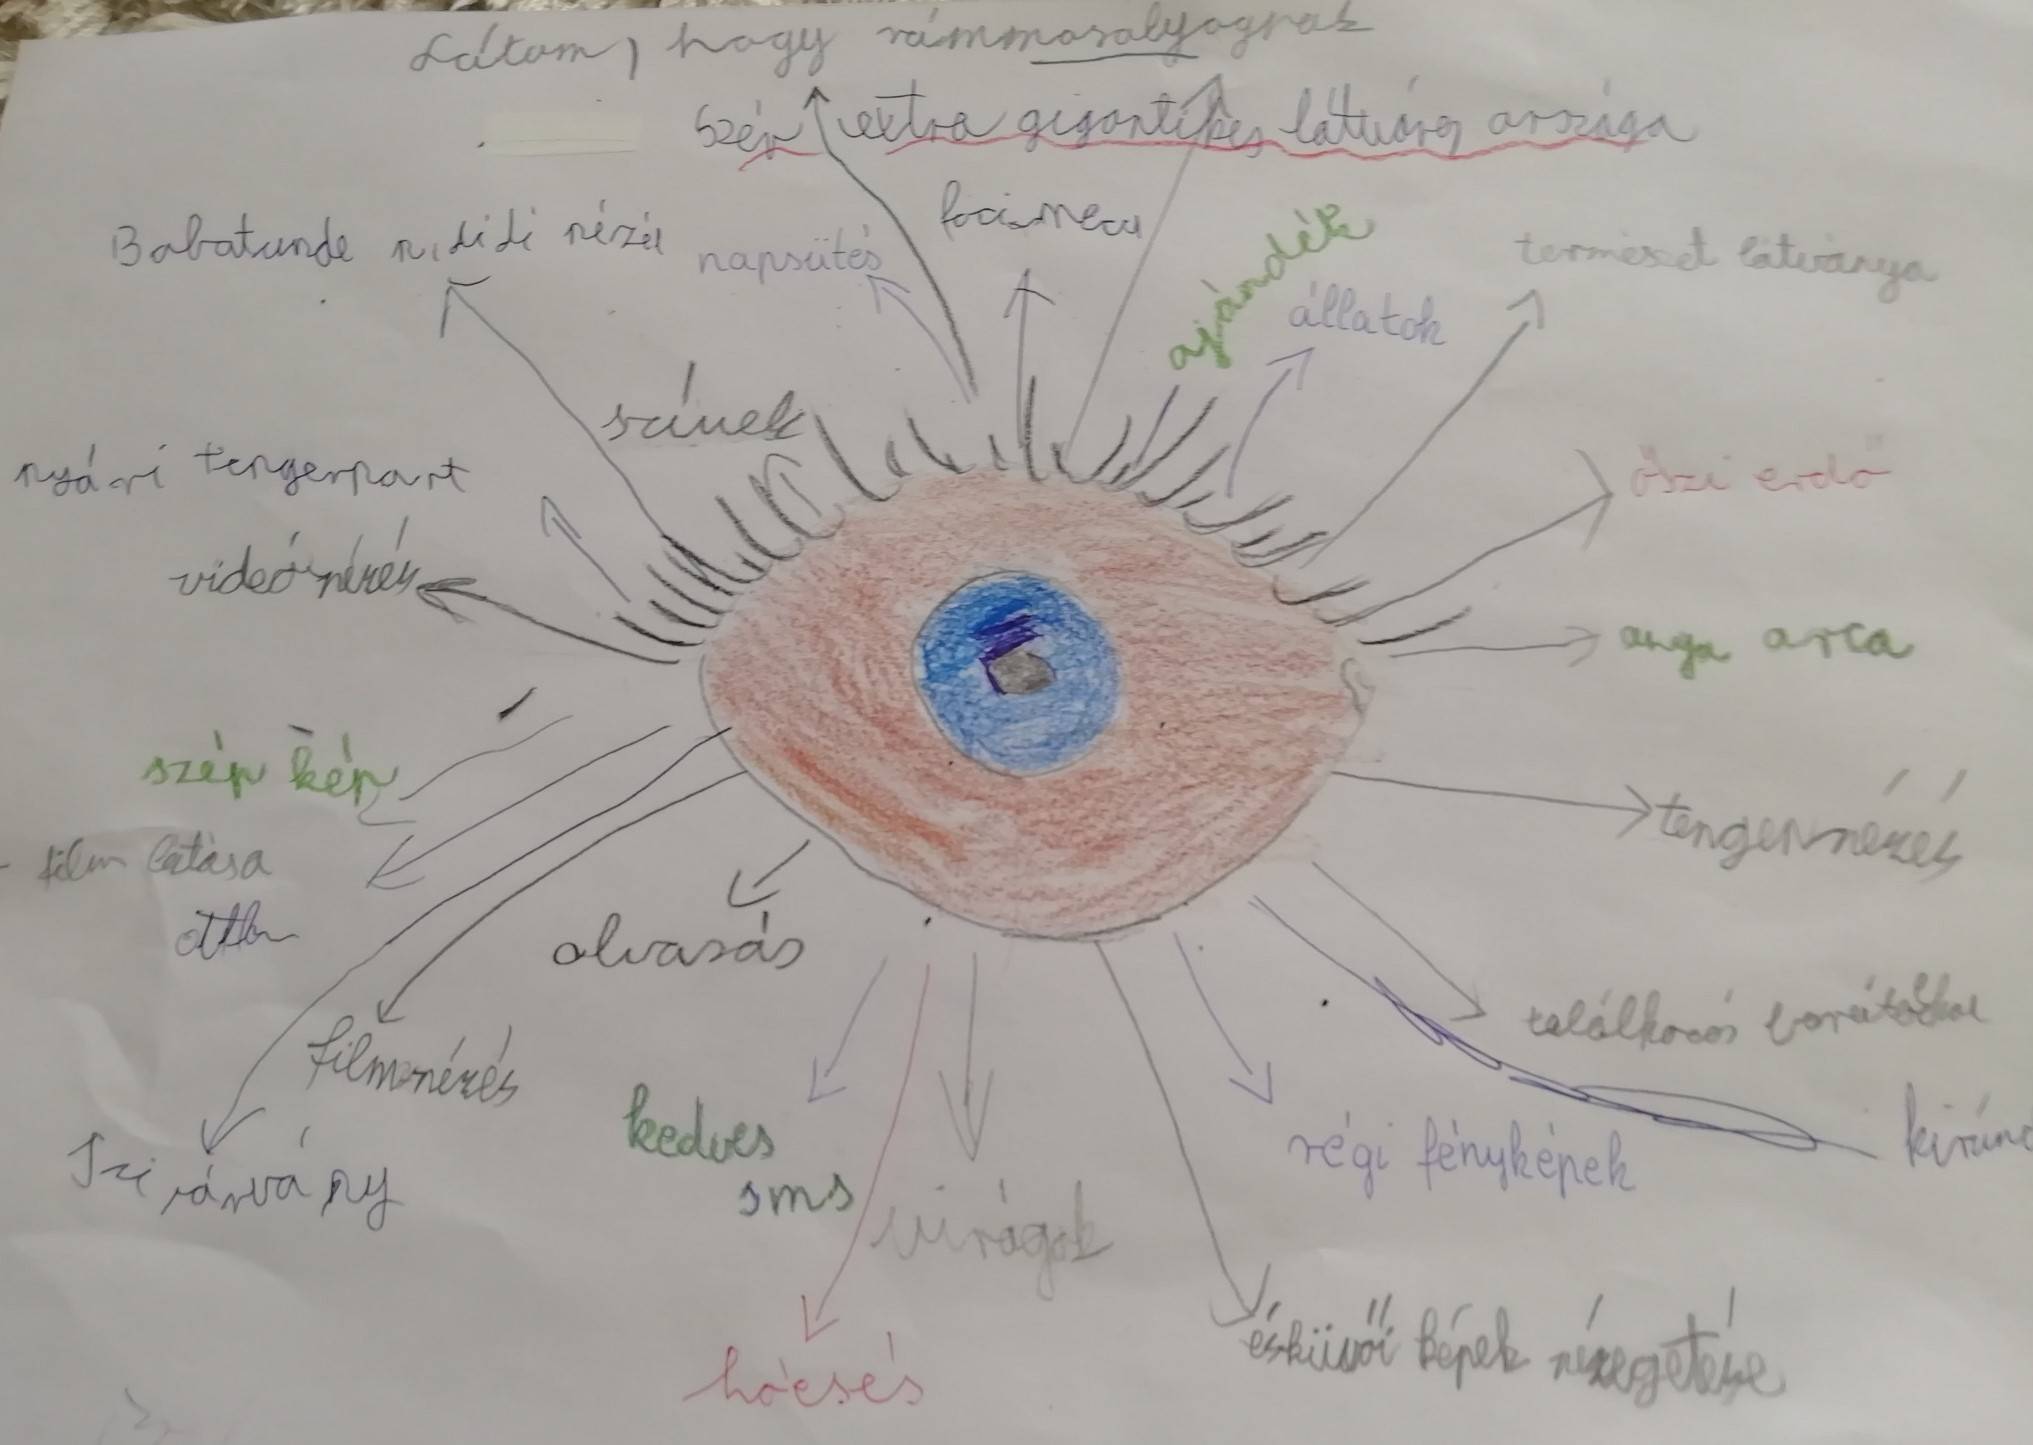 Látom, hogy rámmosolyognak
Szép extra gigantikus látvány országa
Babatunde nididi nézés
napsütés
focimeccs
ajándék
állatok
természet látványa
színek
nyári tengerpart
őszi erdő
videó nézés
anya arca
szép kép
tengernézés
film látása
olvasás
filmnézés
találkozás barátokkal
Szivárvány
kedves
sms
virágok
régi fényképek
kirán
hóesés
esküvői képek nézegetése